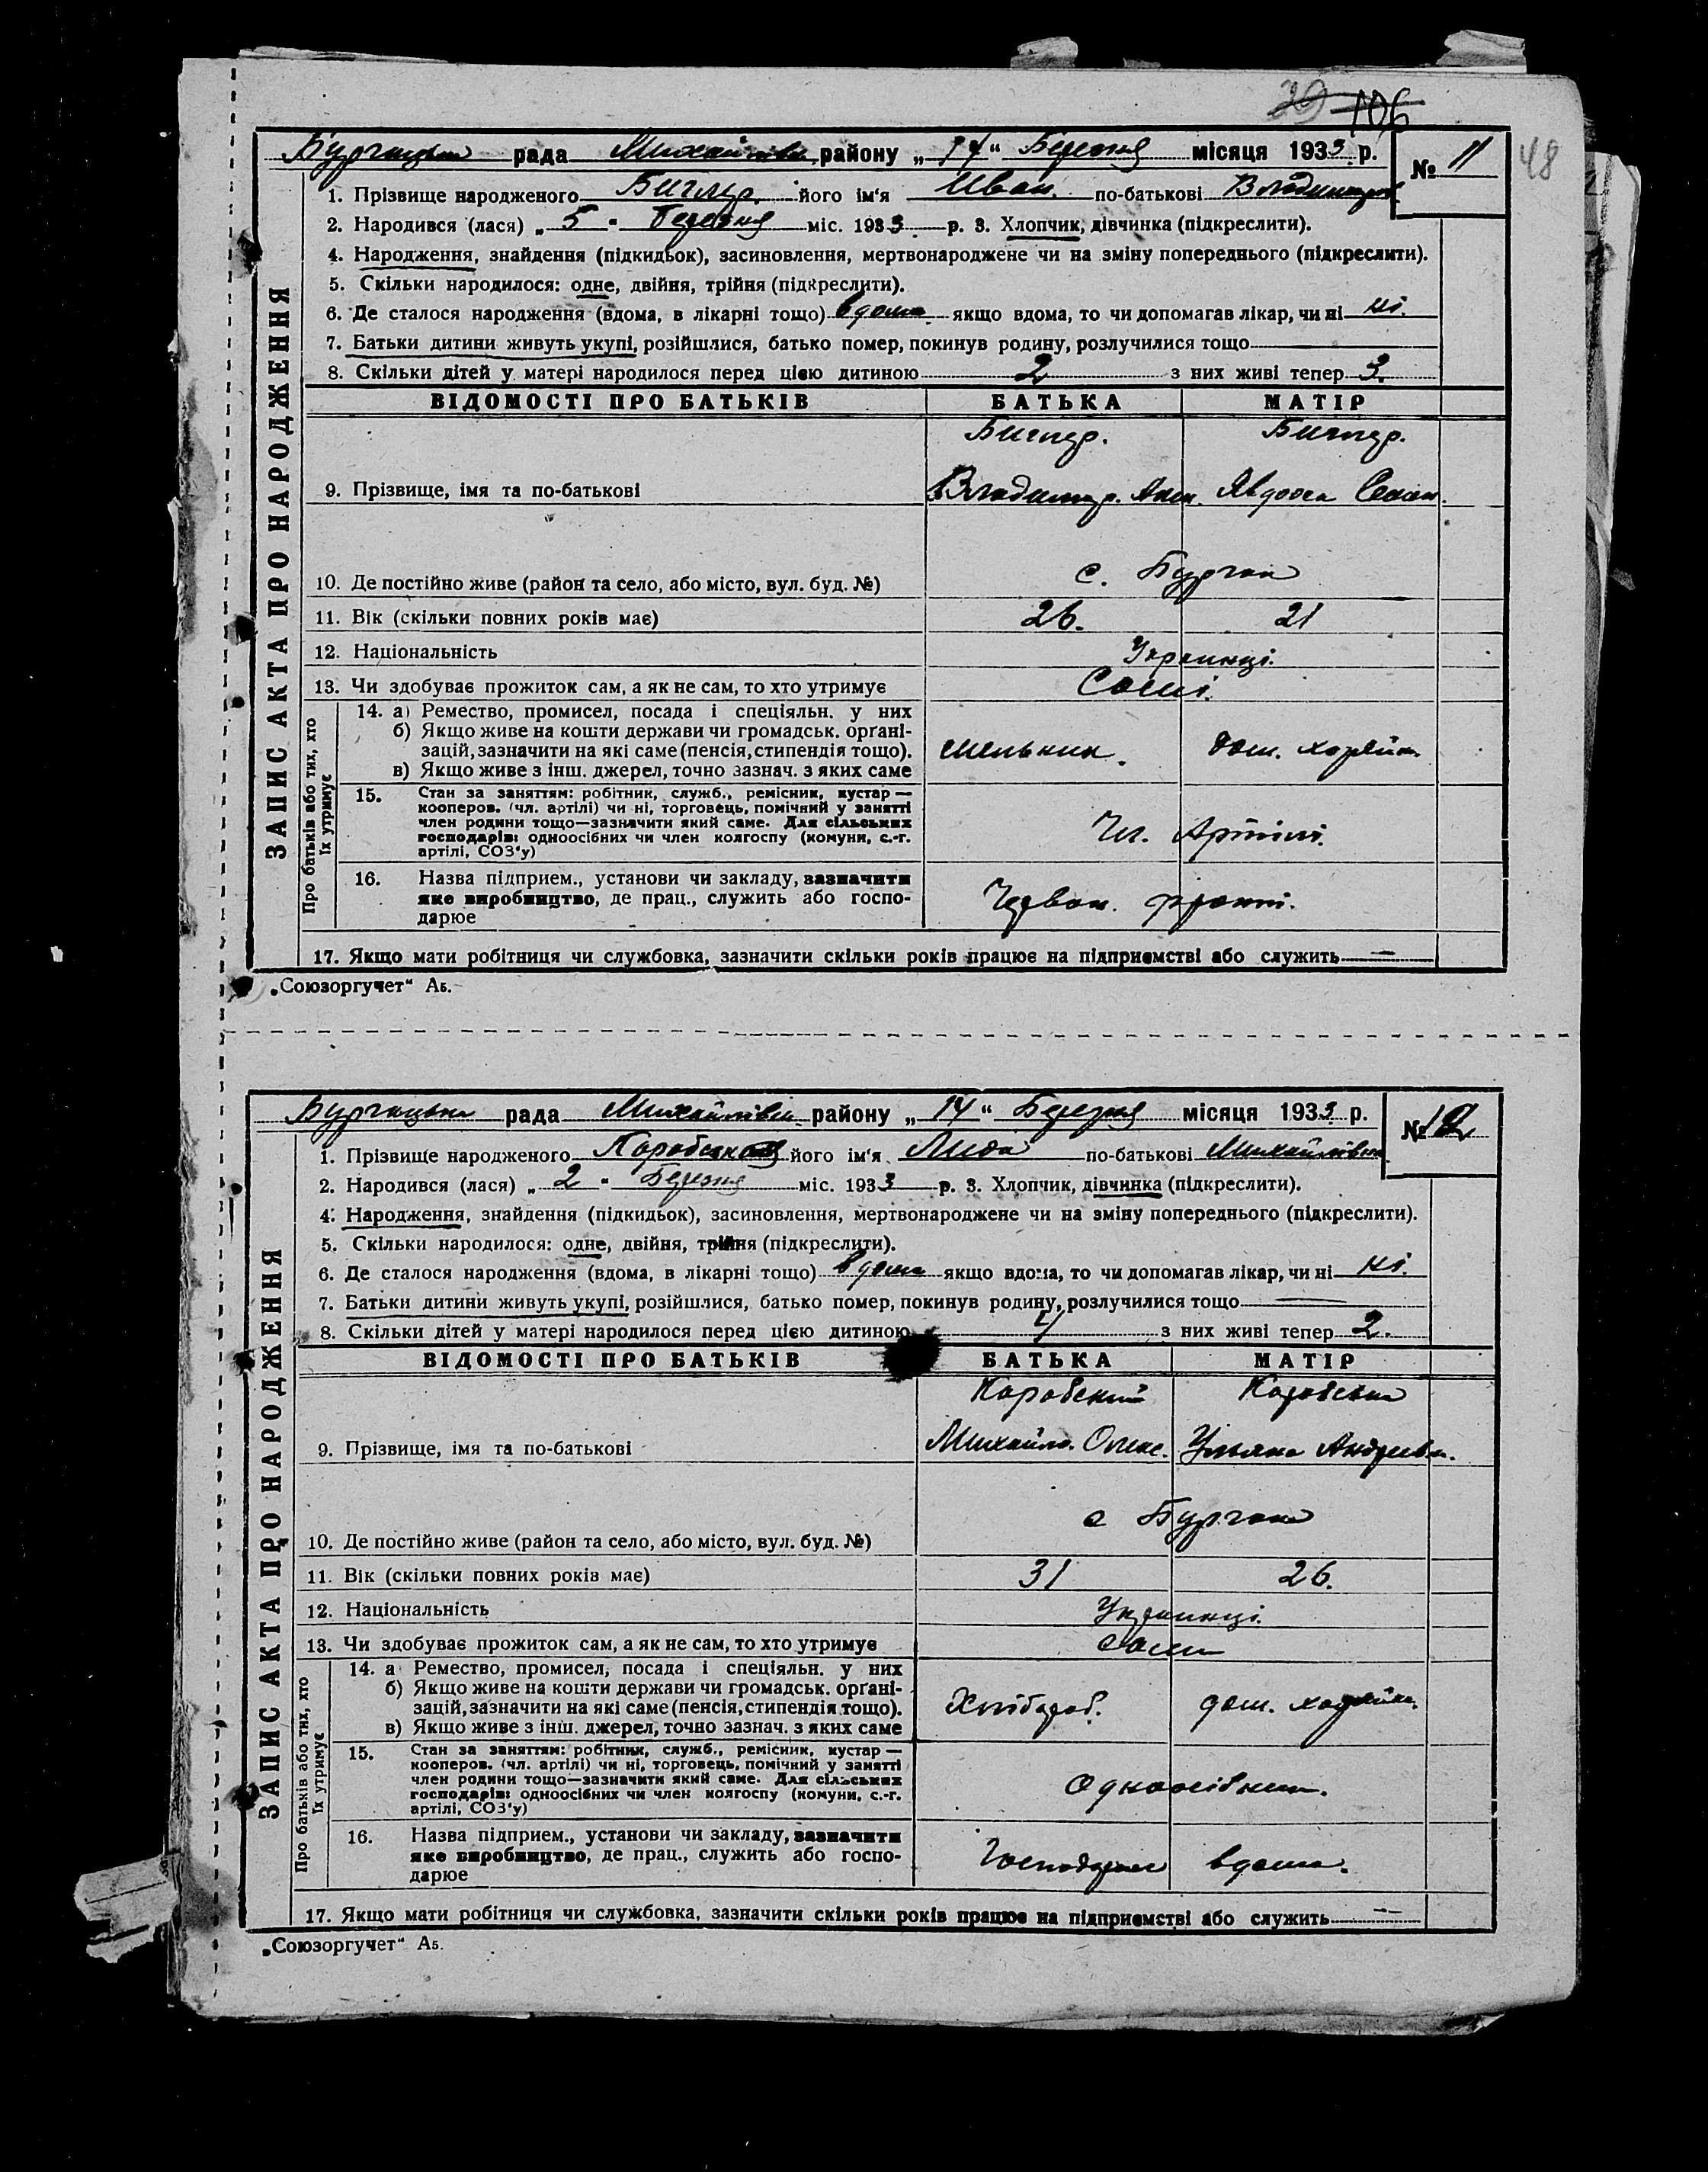 29 106
48
рада Михайлівс. району „14“ Березня місяця 1933 р. № 11
1. Прізвище народженого його ім'я Иван. по-батькові Владимиров
2. Народився (лася) „5“ березня міс. 1933 р. 3. Хлопчик, дівчинка (підкреслити).
4. Народження, знайдення (підкидьок), засиновлення, мертвонароджене чи на зміну попереднього (підкреслити).
5. Скільки народилося: одне, двійня, трійня (підкреслити).
6. Де сталося народження (вдома, в лікарні тощо) вдома якщо вдома, то чи допомагав лікар, чи ні ні.
7. Батьки дитини живуть укупі, розійшлися, батько помер, покинув родину, розлучилися тощо
8. Скільки дітей у матері народилося перед цією дитиною 2 з них живі тепер 3.
ВІДОМОСТІ ПРО БАТЬКІВ БАТЬКА МАТІР
9. Прізвище, імя та по-батькові Владимир. Явдоха
10. Де постійно живе (район та село, або місто, вул. буд. №) с. Бурчак
11. Вік (скільки повних років має) 26. 21
12. Національність Украинці.
13. Чи здобуває прожиток сам, а як не сам, то хто утримує Самі.
14. а) Ремество, промисел, посада і спеціяльн. у них
б) Якщо живе на кошти держави чи громадськ. орґані-
зацій, зазначити на які саме (пенсія, стипендія тощо). мельник. дом. хозяйка
в) Якщо живе з інш. джерел, точно зазнач. з яких саме
15. Стан за заняттям: робітник, служб., ремісник, кустар —
кооперов. (чл. артілі) чи ні, торговець, помічний у занятті
член родини тощо—зазначити який саме. Для сільських
господарів: одноосібних чи член колгоспу (комуни, с.-г.
артілі, СОЗ'у) Чл. Артілі.
16. Назва підприєм., установи чи закладу, зазначити
яке виробництво, де прац., служить або госпо-
дарює Червон. фронт.
17. Якщо мати робітниця чи службовка, зазначити скільки років працює на підприємстві або служить —
ЗАПИС АКТА ПРО НАРОДЖЕННЯ
Про батьків або тих, хто
їх утримує
„Союзоргучет“ А5.
рада Михайлівс. району „14“ Березня місяця 1933 р. № 12
1. Прізвище народженого його ім'я Лида по-батькові Михайлівна
2. Народився (лася) „2“ Березня міс. 1933 р. 3. Хлопчик, дівчинка (підкреслити).
4. Народження, знайдення (підкидьок), засиновлення, мертвонароджене чи на зміну попереднього (підкреслити).
5. Скільки народилося: одне, двійня, трійня (підкреслити).
6. Де сталося народження (вдома, в лікарні тощо) вдома якщо вдома, то чи допомагав лікар, чи ні ні.
7. Батьки дитини живуть укупі, розійшлися, батько помер, покинув родину, розлучилися тощо —
8. Скільки дітей у матері народилося перед цією дитиною 4 з них живі тепер 2.
ВІДОМОСТІ ПРО БАТЬКІВ БАТЬКА МАТІР
Каробский
9. Прізвище, імя та по-батькові Михайло. Олекс. Ульяна Андреевн.
10. Де постійно живе (район та село, або місто, вул. буд. №) с Бурчак
11. Вік (скільки повних років має) 31 26.
12. Національність Украинці.
13. Чи здобуває прожиток сам, а як не сам, то хто утримує сами
14. а Ремество, промисел, посада і спеціяльн. у них
б) Якщо живе на кошти держави чи громадськ. орґані-
зацій, зазначити на які саме (пенсія, стипендія тощо). Хлібороб. дом. хозяйка.
в) Якщо живе з інш. джерел, точно зазнач. з яких саме
15. Стан за заняттям: робітник, служб., ремісник, кустар —
кооперов. (чл. артілі) чи ні, торговець, помічний у занятті
член родини тощо—зазначити який саме. Для сільських
господарів: одноосібних чи член колгоспу (комуни, с.-г.
артілі, СОЗ'у) Одноосібник.
16. Назва підприєм., установи чи закладу, зазначити
яке виробництво, де прац., служить або госпо-
дарює вдома.
17. Якщо мати робітниця чи службовка, зазначити скільки років працює на підприємстві або служить —
ЗАПИС АКТА ПРО НАРОДЖЕННЯ
Про батьків або тих, хто
їх утримує
„Союзоргучет“ А5.